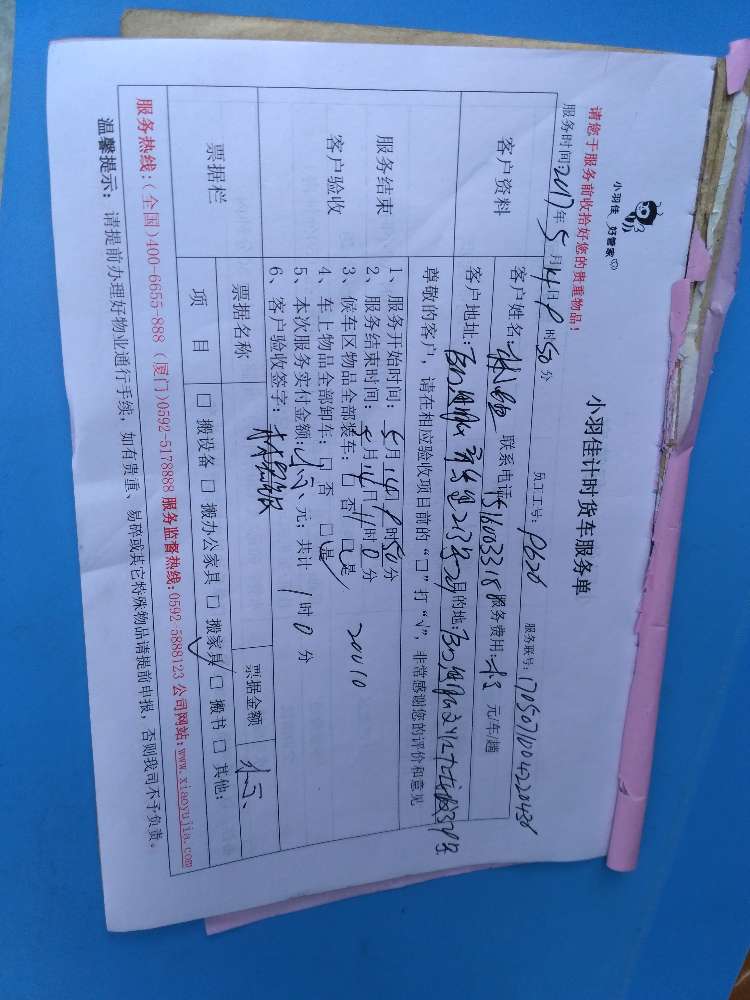 小羽佳 好管家
小羽佳计时货车服务单
请您于服务前收拾好您的贵重物品!
员工工号: P626
服务账号:
服务时间: 2017年5月14日9时50分
客户资料
客户姓名: 联系电话: 服务费用: 元/车/趟
客户地址: 目的地:
尊敬的客户,请在相应验收项目前的“□”打“√”,非常感谢您的评价和意见
服务结束
客户验收
1、服务开始时间: 5月14日9时50分
2、服务结束时间: 5月14日11时0分
3、候车区物品全部装车: □否 □是
4、车上物品全部卸车: □否 □是
20010
5、本次服务实付金额: 元; 共计 1时0分
6、客户验收签字:
票据栏
票据名称
票据金额
项 目
□搬设备 □搬办公家具 □搬家具 □搬书 □其他:
服务热线:(全国)400-6655-888 (厦门)0592-5178888 服务监督热线:0592-5888123 公司网站:www.xiaoyujia.com
温馨提示: 请提前办理好物业通行手续,如有贵重、易碎或其它特殊物品请提前申报,否则我司不予负责。